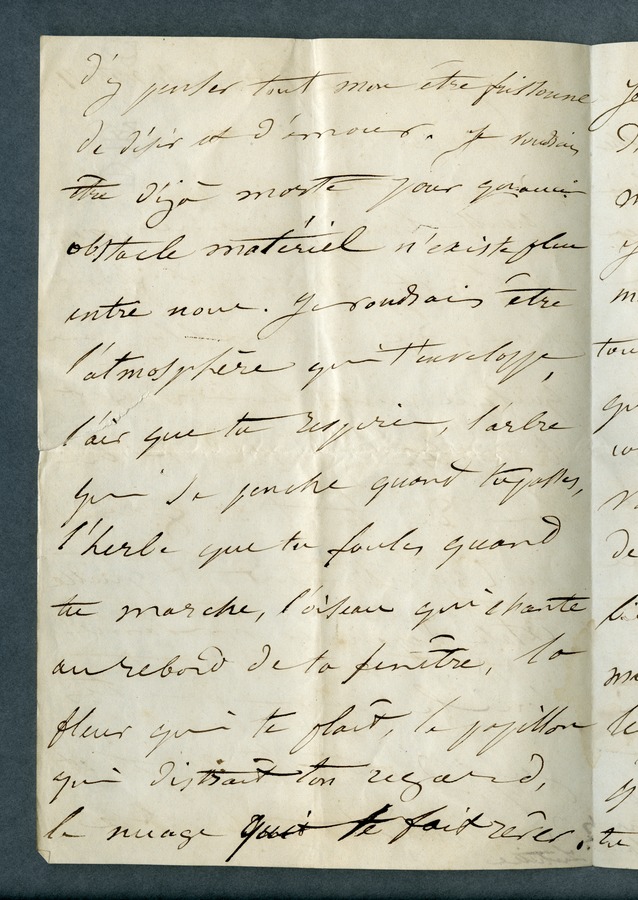 d'y penser tout mon être frissonne
de désir et d'amour. Je voudrais
être déjà morte pour qu'aucun
obstacle matériel n'existe plus
entre nous. Je voudrais être
l'atmosphère qui t'enveloppe,
l'air que tu respires, l'arbre
qui se penche quand tu passes,
l'herbe que tu foules quand
tu marche, l'oiseau qui chante
au rebord de ta fenêtre, la
fleur qui te plaît, le papillon
qui distrait ton regard,
le nuage qui te fait rêver.
tou
qu
de
le
tu